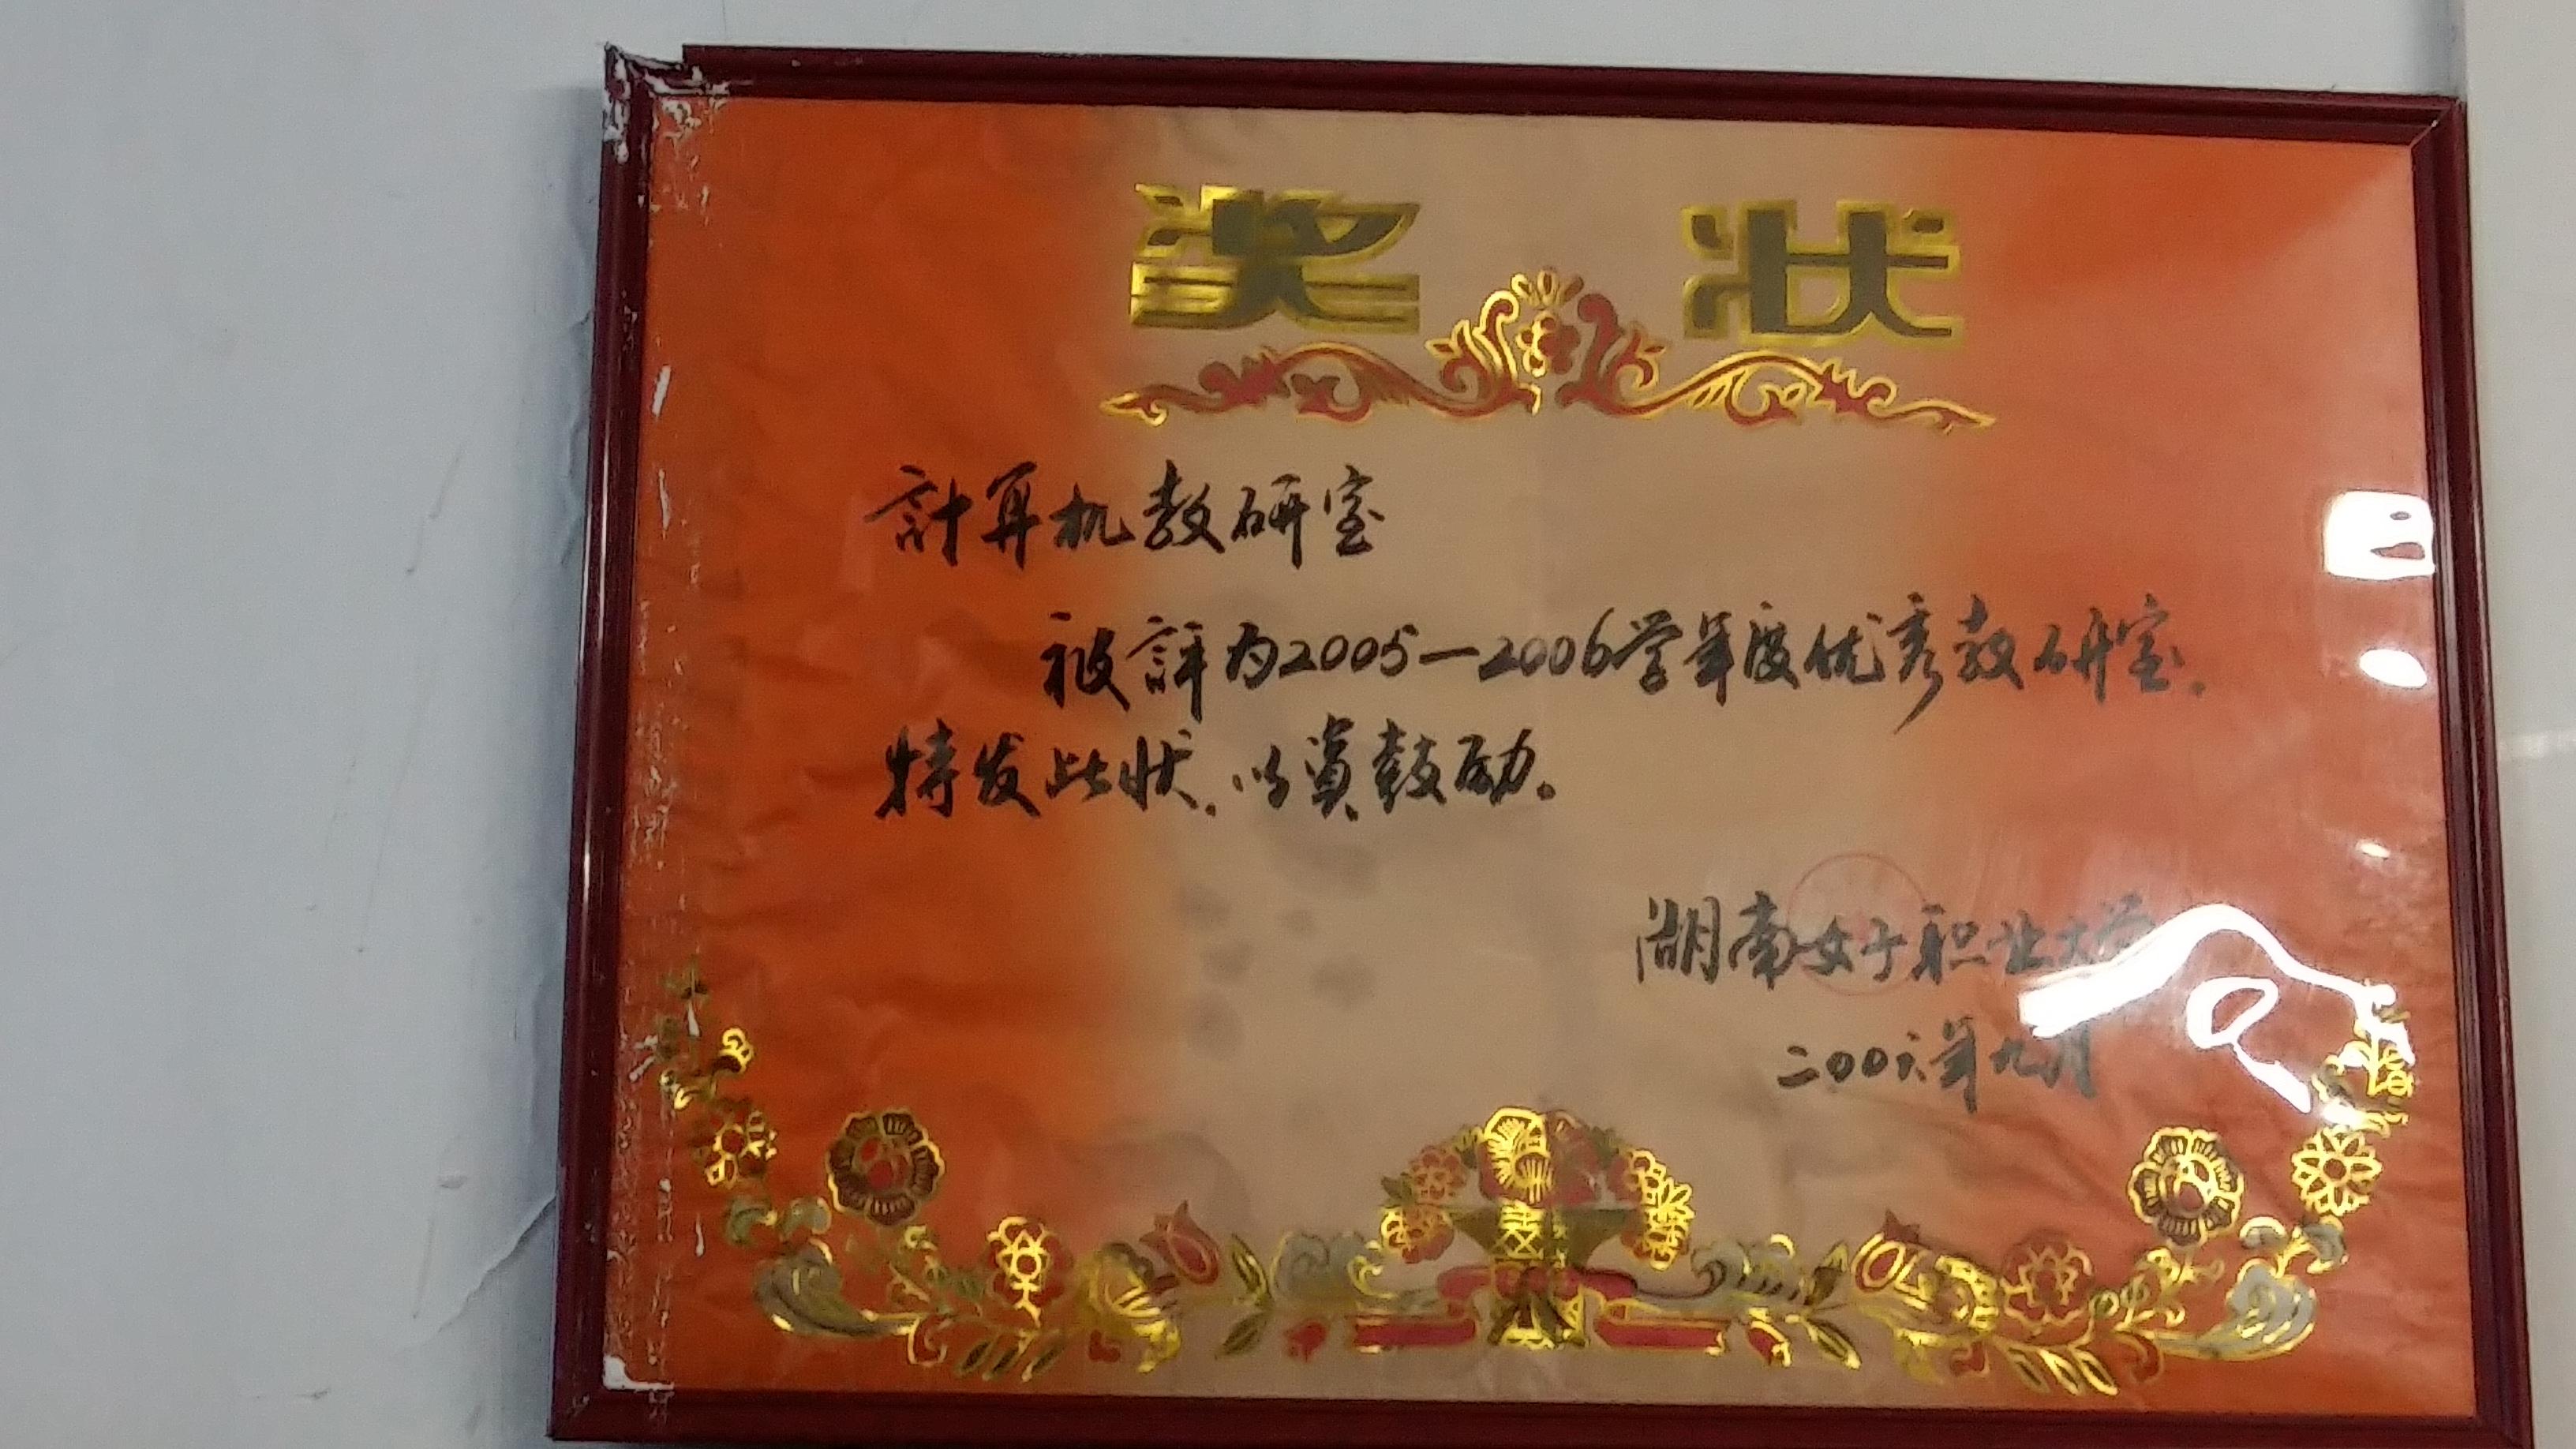 奖 状
計算机教研室
被評为2005—2006学年度优秀教研室.
特发此状.以資鼓励。
湖南女子职业大学
二00六年九月